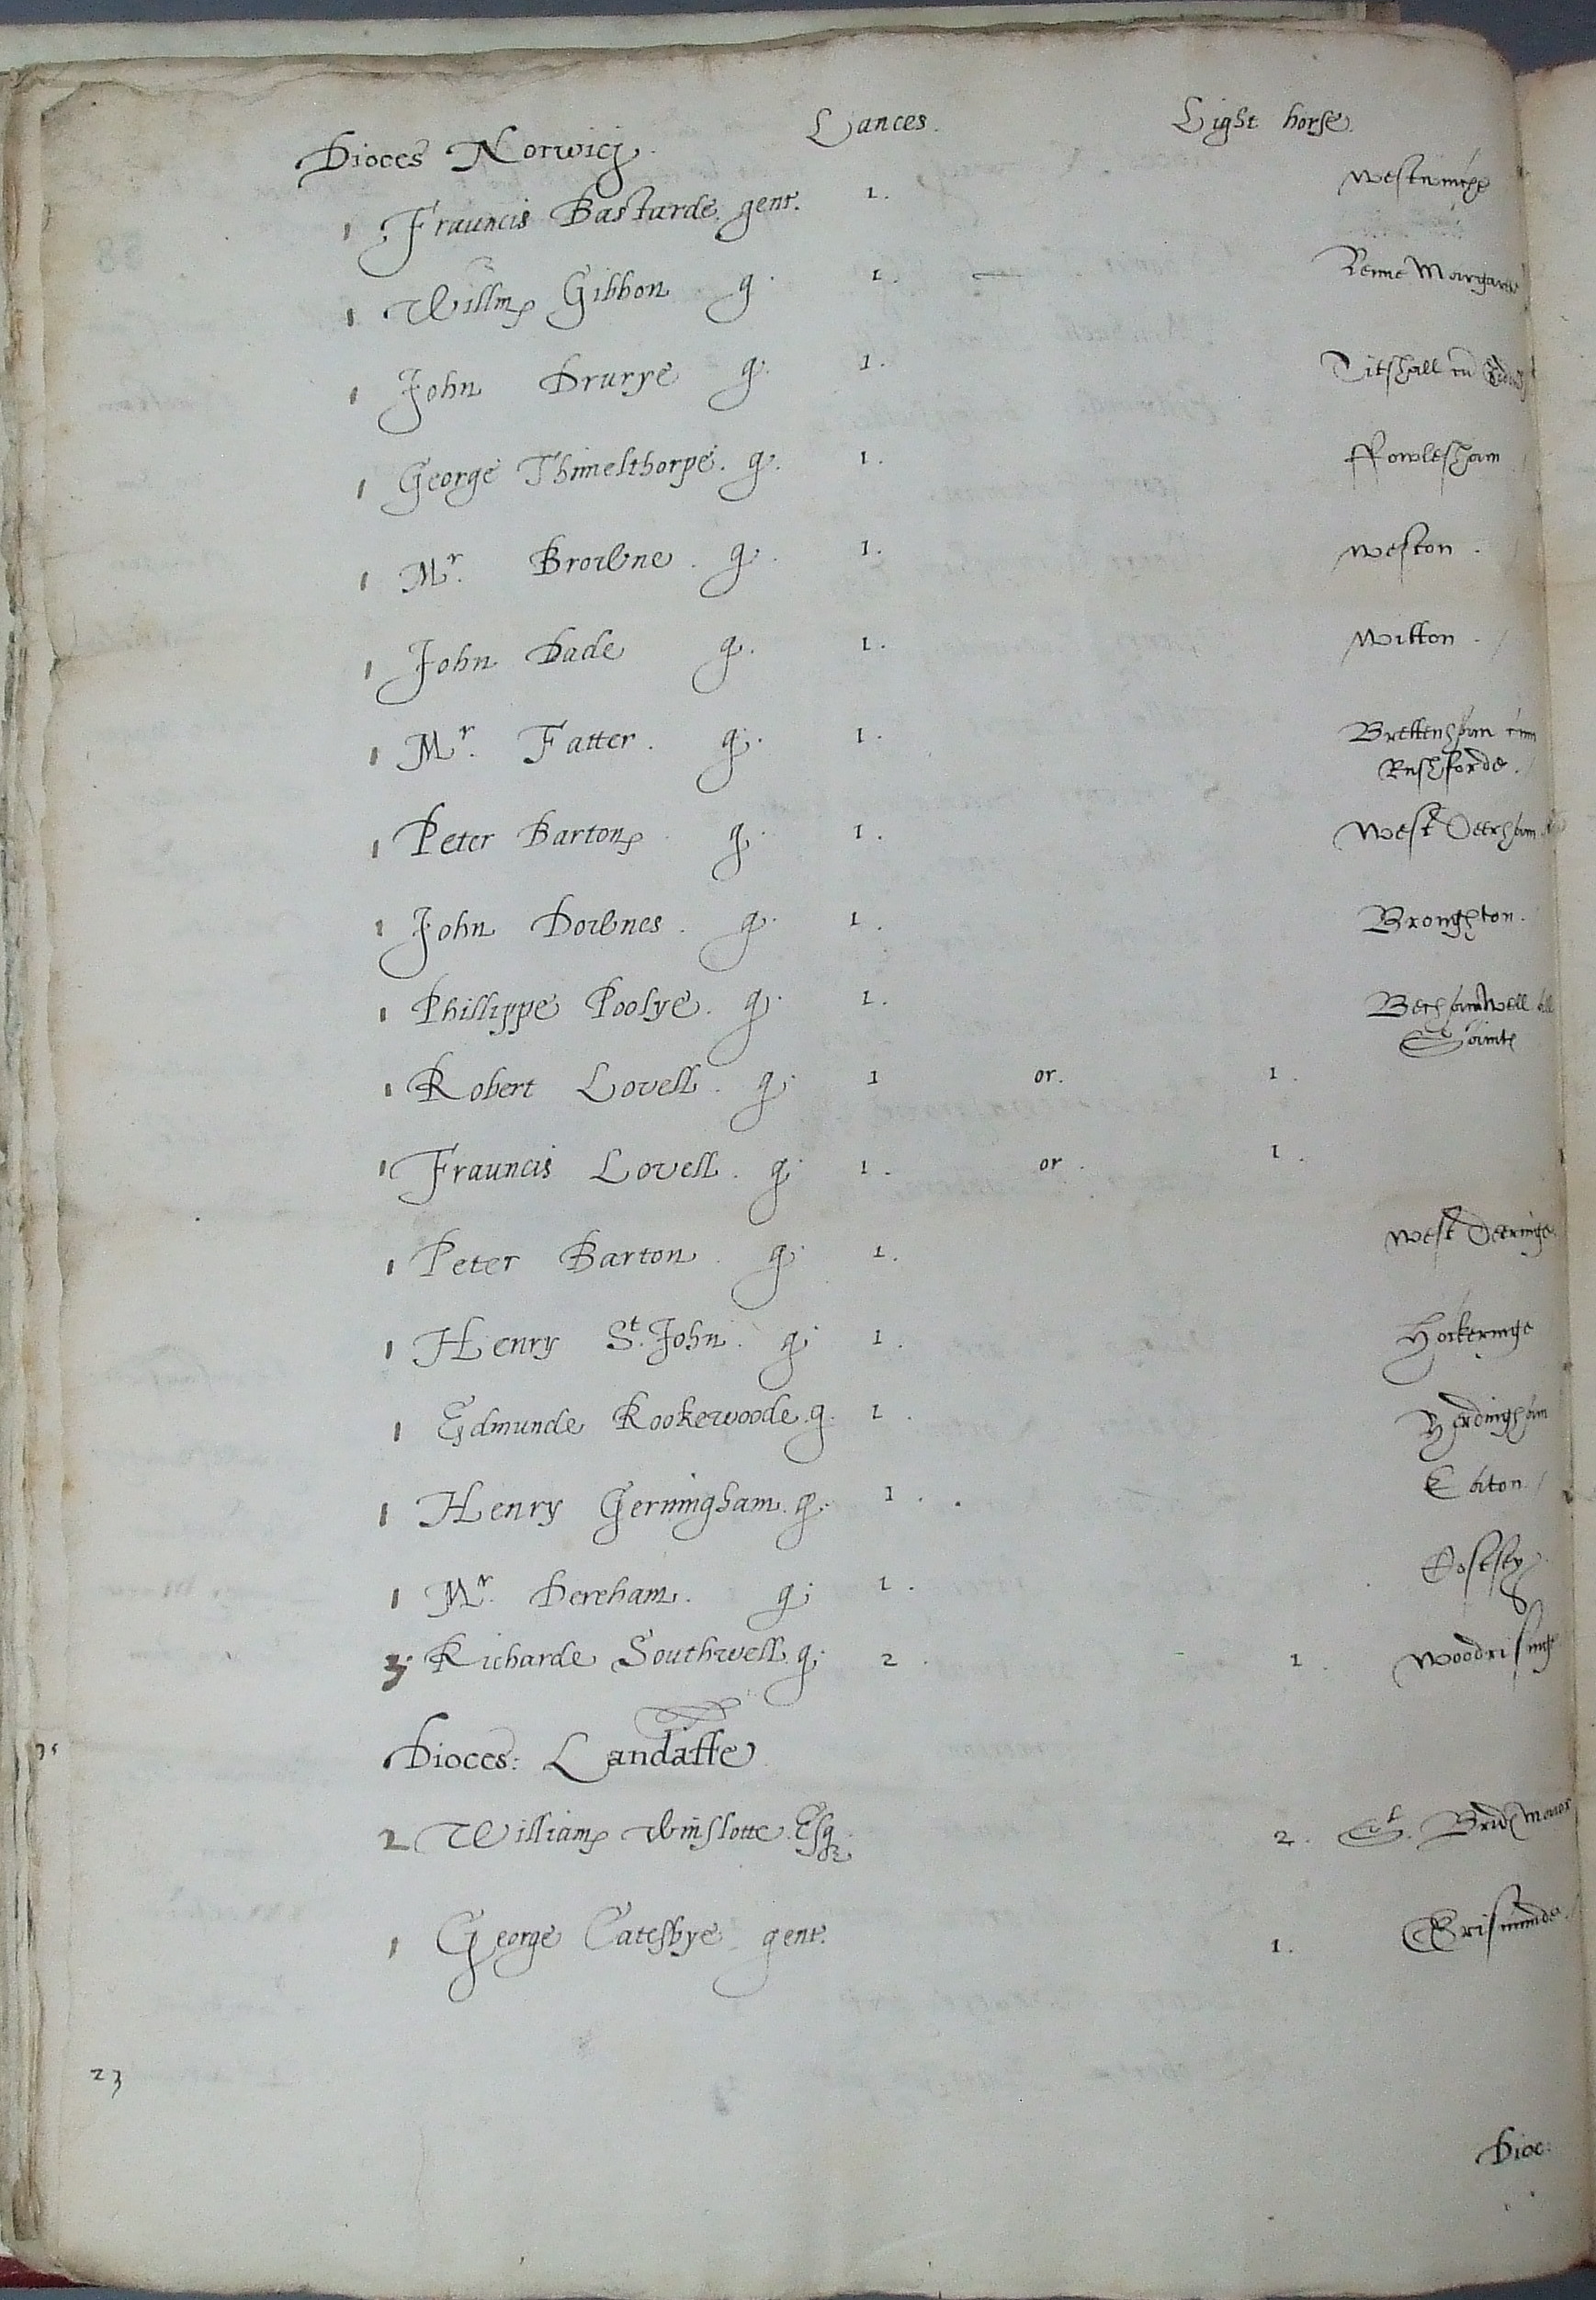 Dioces Norwicj. Lances. Light horse.
1 Frauncis Bastarde. gent. 1. westwinche
1 Willm Gibbon g. 1. Lenne Margarete
1 John Drurye g. 1. Titshall cu
1 George Thimelthorpe. g. 1. ffowlesham
1 Mr. Browne. g. 1. weston.
1 John Dade g. 1. witton.
1 Mr. Fatter. g. 1. Brettenham cum
Rushforde.
1 Peter Barton g. 1. West Deerham
1 John Downes. g. 1. Broughton.
1 Phillippe Poolye. g. 1. Bechamwell all
Saintes
1 Robert Lovell. g. 1 or. 1.
1 Frauncis Lovell. g. 1. or. 1.
1 Peter Barton. g. 1. west Deeringe
1 Henry St. John. g. 1. Hockeringe
1 Edmunde Rookewoode. g. 1. Yerdingham
1 Henry Gerningham. g. 1. Eaton
1 Mr. Dereham. g. 1. Costsey
3. Richarde Southwell. g. 2. 1. woodrisinge
Dioces: Landaffe
2 William Winslotte. Esq 2. St. Brid Manor
1 George Catesbye gent. 1.
23
Dioc: